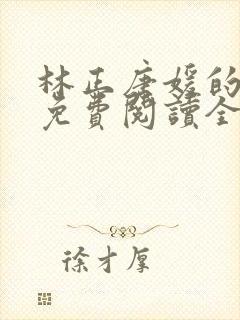 林正唐媛的
免費閱讀全
徐才厚